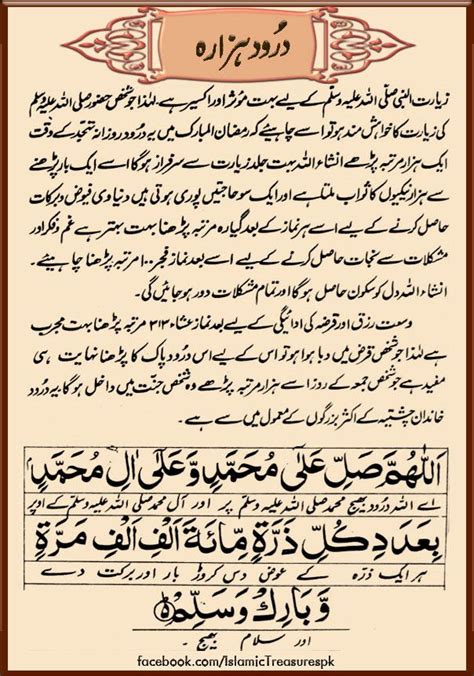 درود ہزارہ
زیارت النبی صلی اللہ علیہ وسلم کے لیے بہت مؤثر اور اکسیر ہے۔ لہٰذا جو شخص حضور صلی اللہ علیہ وسلم
کی زیارت کا خواہش مند ہو تو اسے چاہیئے کہ رمضان المبارک میں یہ درود روزانہ تہجد کے وقت
ایک ہزار مرتبہ پڑھے انشاء اللہ بہت جلد زیارت سے سرفراز ہوگا اسے ایک بار پڑھنے
سے ہزار نیکیوں کا ثواب ملتا ہے اور ایک سو حاجتیں پوری ہوتی ہیں دنیاوی فیوض و برکات
حاصل کرنے کے لیے اسے ہر نماز کے بعد گیارہ مرتبہ پڑھنا بہت بہتر ہے غم و فکر اور
مشکلات سے نجات حاصل کرنے کے لیے اسے بعد نماز فجر ۱۰۰ مرتبہ پڑھنا چاہیئے۔
انشاء اللہ دل کو سکون حاصل ہوگا اور تمام مشکلات دور ہو جائیں گی۔
وسعت رزق اور قرضہ کی ادائیگی کے لیے بعد نماز عشاء ۳۱۳ مرتبہ پڑھنا بہت مجرب
ہے لہٰذا جو شخص قرض میں دبا ہوا ہو تو اس کے لیے اس درود پاک کا پڑھنا نہایت ہی
مفید ہے جو شخص جمعہ کے روز اسے ہزار مرتبہ پڑھے وہ شخص جنت میں داخل ہوگا یہ درود
خاندان چشتیہ کے اکثر بزرگوں کے معمول میں سے ہے۔
اَللّٰهُمَّ صَلِّ عَلٰى مُحَمَّدٍ وَّعَلٰى اٰلِ مُحَمَّدٍ
اے اللہ درود بھیج محمد صلی اللہ علیہ وسلم پر اور آل محمد صلی اللہ علیہ وسلم کے اوپر
بِعَدَدِ كُلِّ ذَرَّةٍ مِّائَةَ اَلْفِ اَلْفِ مَرَّةٍ
ہر ایک ذرّہ کے عوض دس کروڑ بار اور برکت دے
وَّبَارِكْ وَسَلِّمْ
اور سلام بھیج۔
facebook.com/IslamicTreasurespk